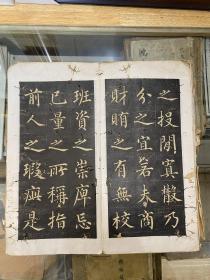 之投閒寘散乃
分之宜若夫商
財賄之有無校
班資之崇庳忘
己量之所稱指
前人之瑕疵是